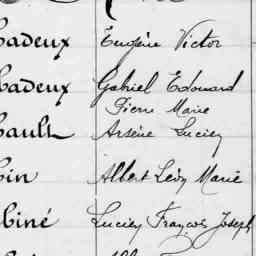 Cadeux Eugène Victor
Cadeux Gabriel Edouard
Pierre Marie
Cault Arsène Lucien
Cin Albert Léon Marie
Cliné Lucien François Joseph